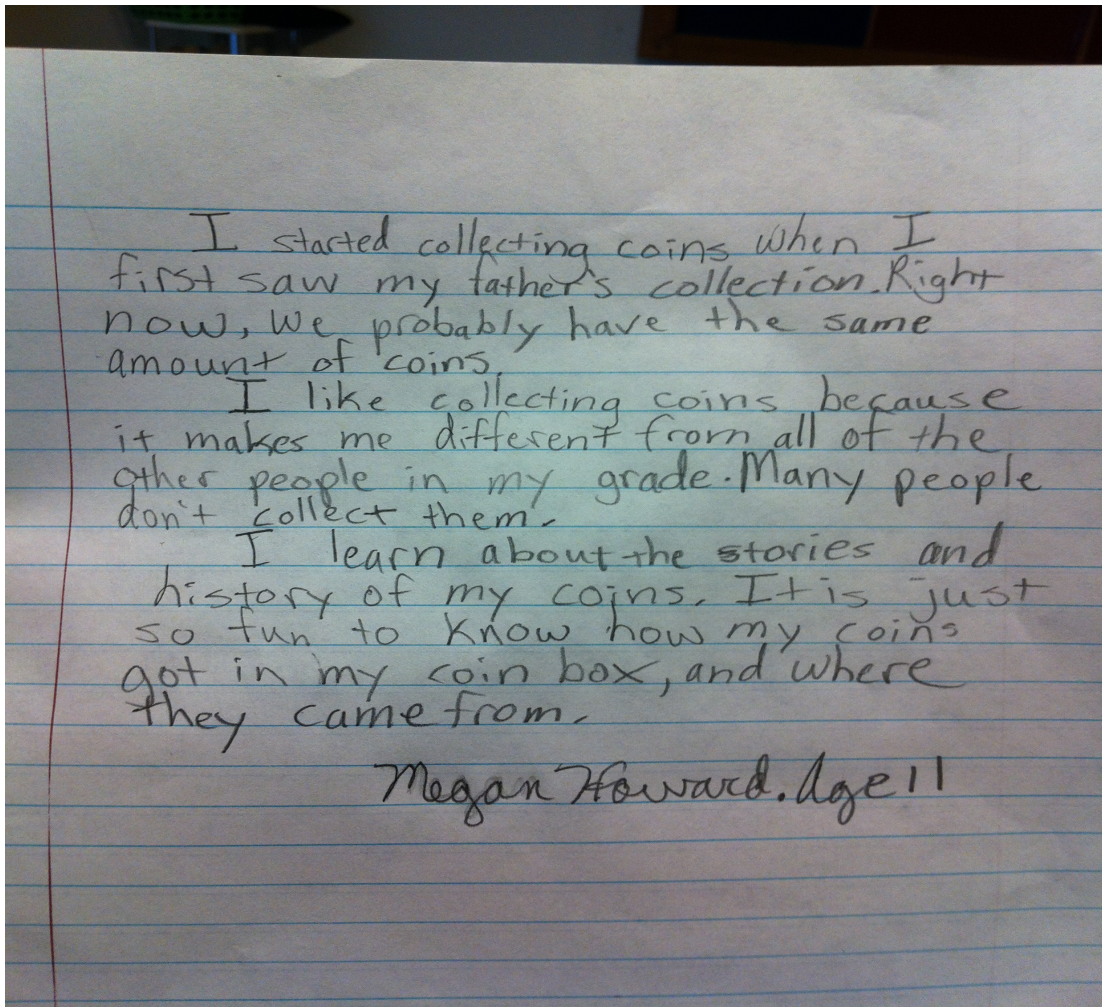 I started collecting coins when I
first saw my father's collection. Right
now, we probably have the same
amount of coins.
I like collecting coins because
it makes me different from all of the
other people in my grade. Many people
don't collect them.
I learn about the stories and
history of my coins. It is just
so fun to know how my coins
got in my coin box, and where
they came from.
Megan Howard. Age 11